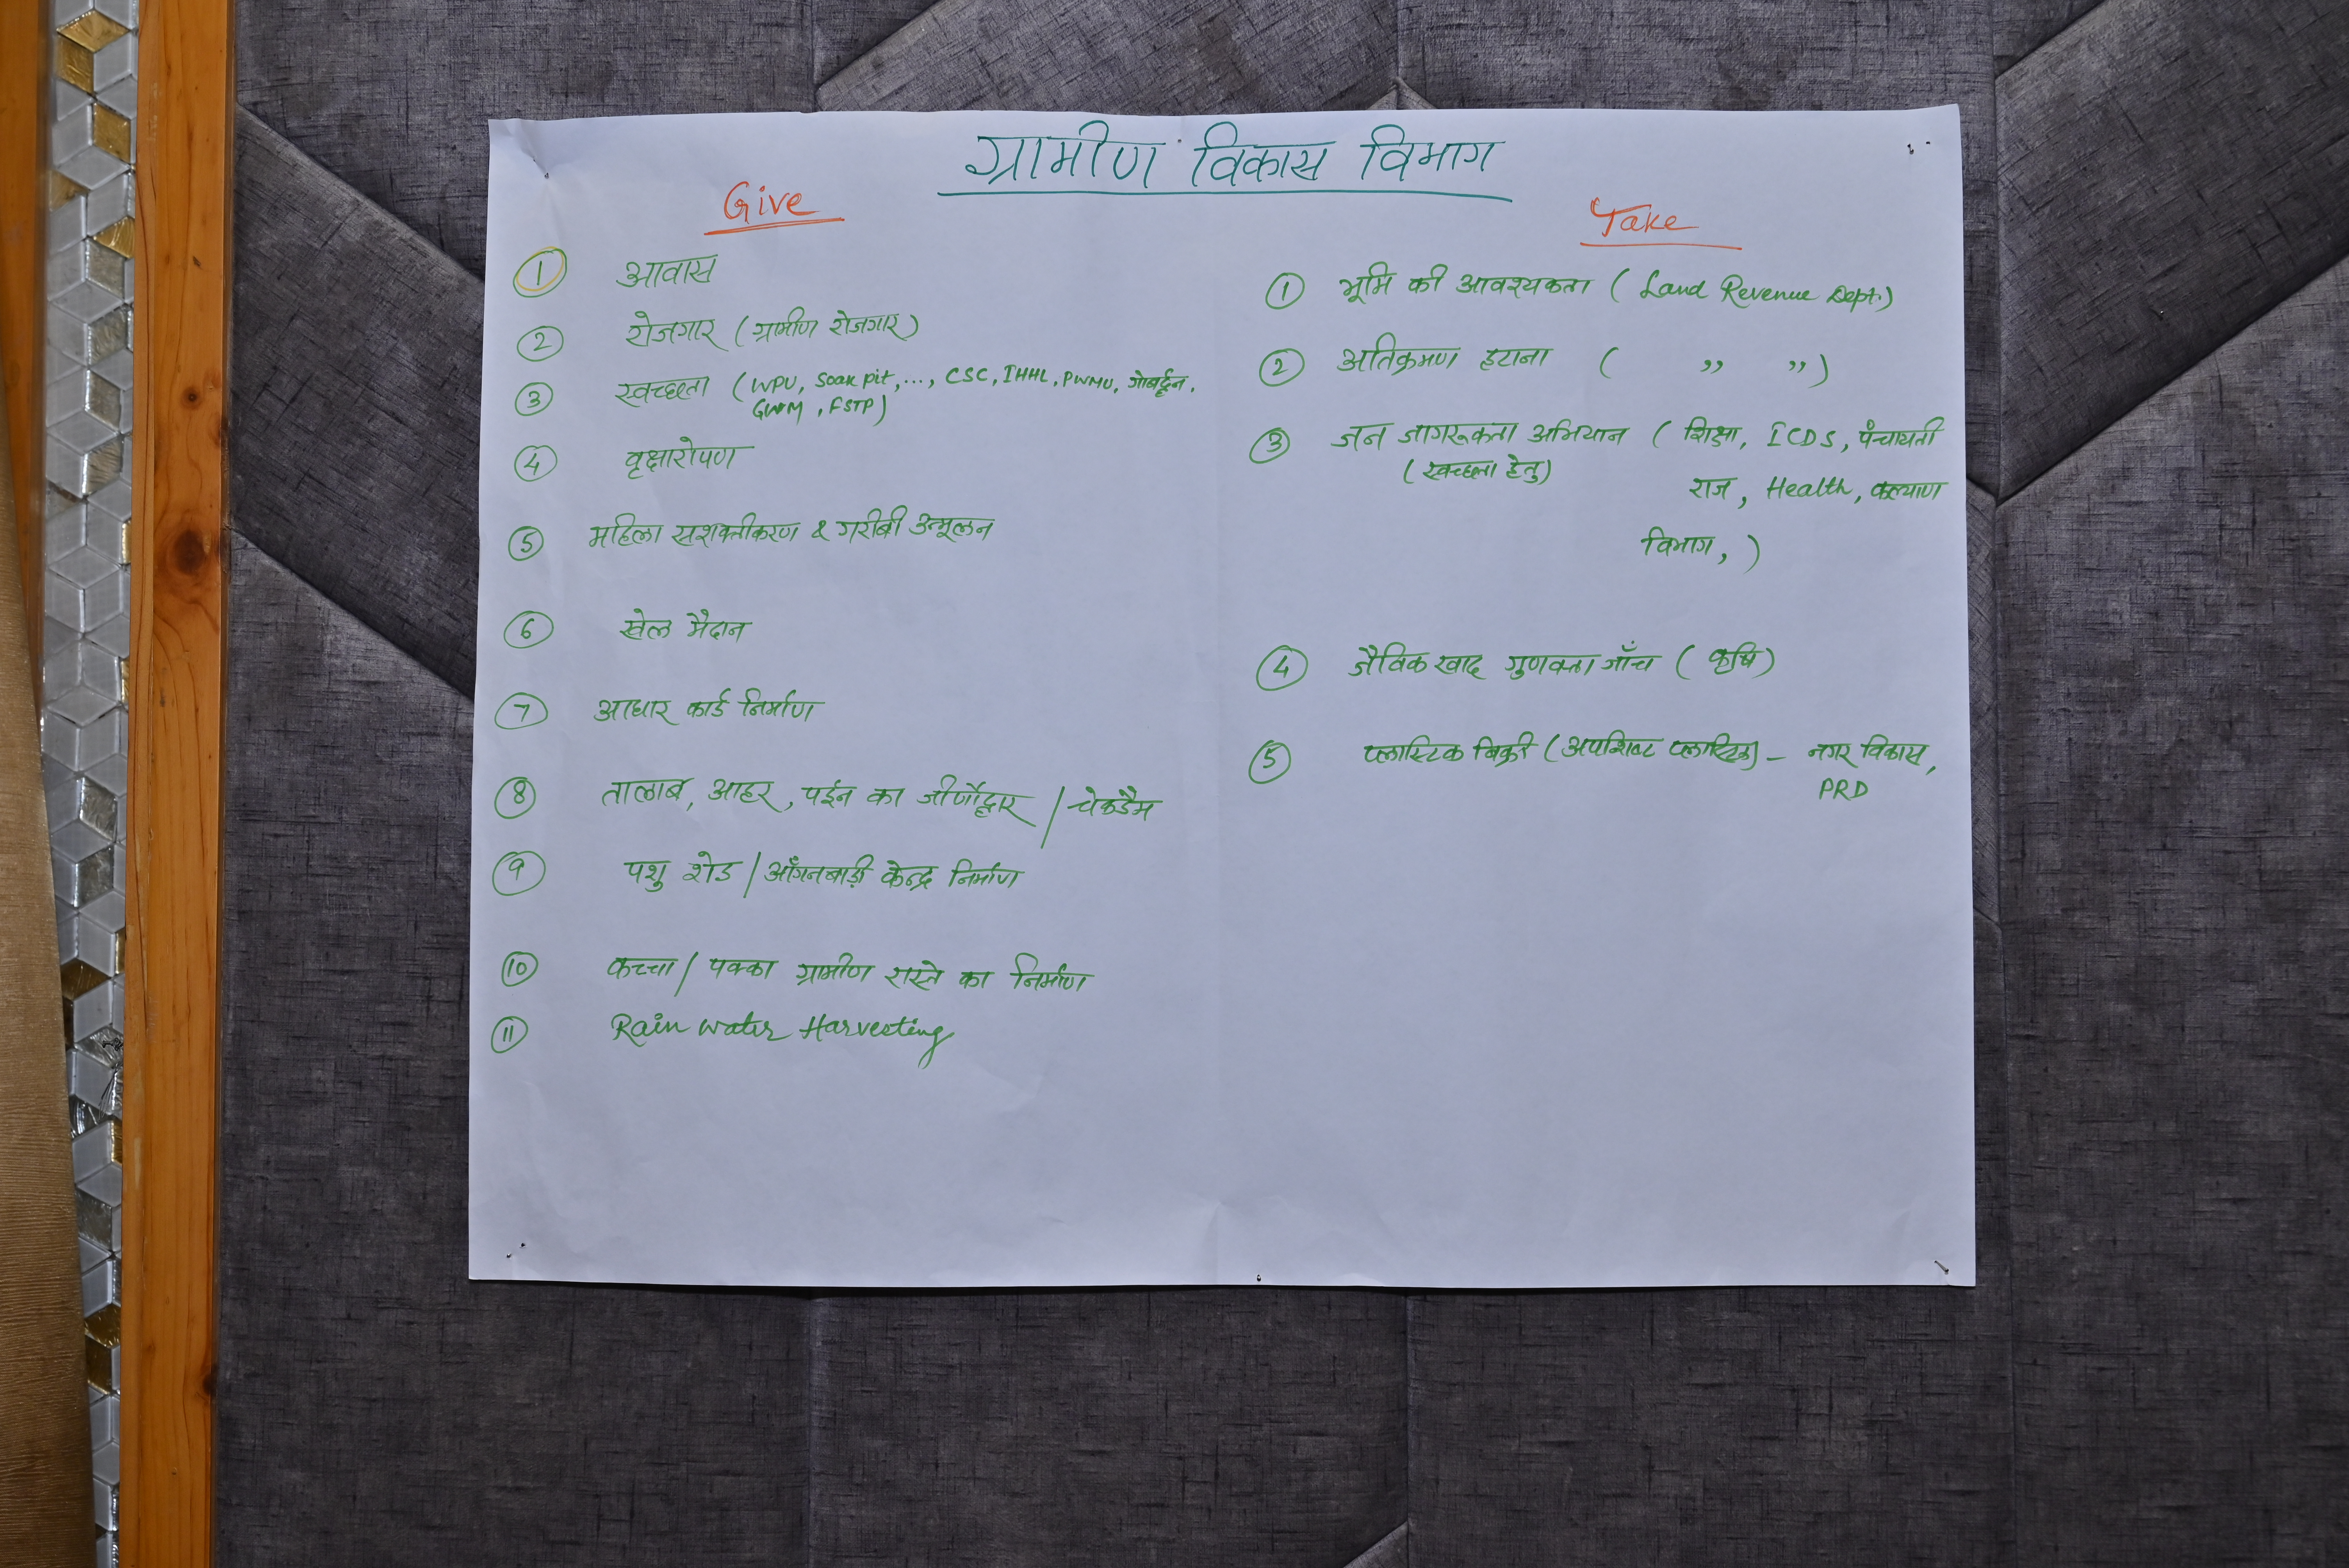 ग्रामीण विकास विभाग
Give
① आवास
② रोजगार (ग्रामीण रोजगार)
③ स्वच्छता (WPU, Soak pit, ..., CSC, IHHL, PWMU, गोबर्द्धन,
GWM, FSTP)
④ वृक्षारोपण
⑤ महिला सशक्तीकरण & गरीबी उन्मूलन
⑥ खेल मैदान
⑦ आधार कार्ड निर्माण
⑧ तालाब, आहर, पईन का जीर्णोद्धार / चेकडैम
⑨ पशु शेड / आँगनबाड़ी केन्द्र निर्माण
⑩ कच्चा / पक्का ग्रामीण रास्ते का निर्माण
⑪ Rain water Harvesting
Take
① भूमि की आवश्यकता (Land Revenue Dept.)
② अतिक्रमण हटाना ( ,, ,, )
③ जन जागरूकता अभियान (शिक्षा, ICDS, पंचायती
(स्वच्छता हेतु) राज, Health, कल्याण
विभाग, )
④ जैविक खाद गुणवत्ता जाँच (कृषि)
⑤ प्लास्टिक बिक्री (अपशिष्ट प्लास्टिक) - नगर विकास,
PRD